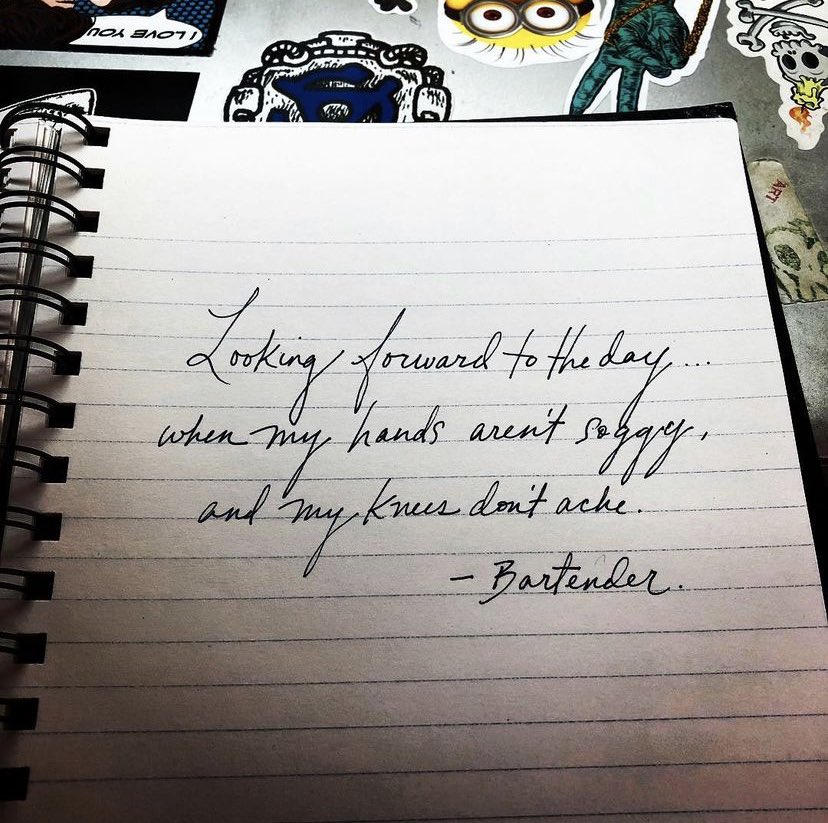 I LOVE YOU
ART
Looking forward to the day...
when my hands aren't soggy,
and my knees don't ache.
- Bartender.